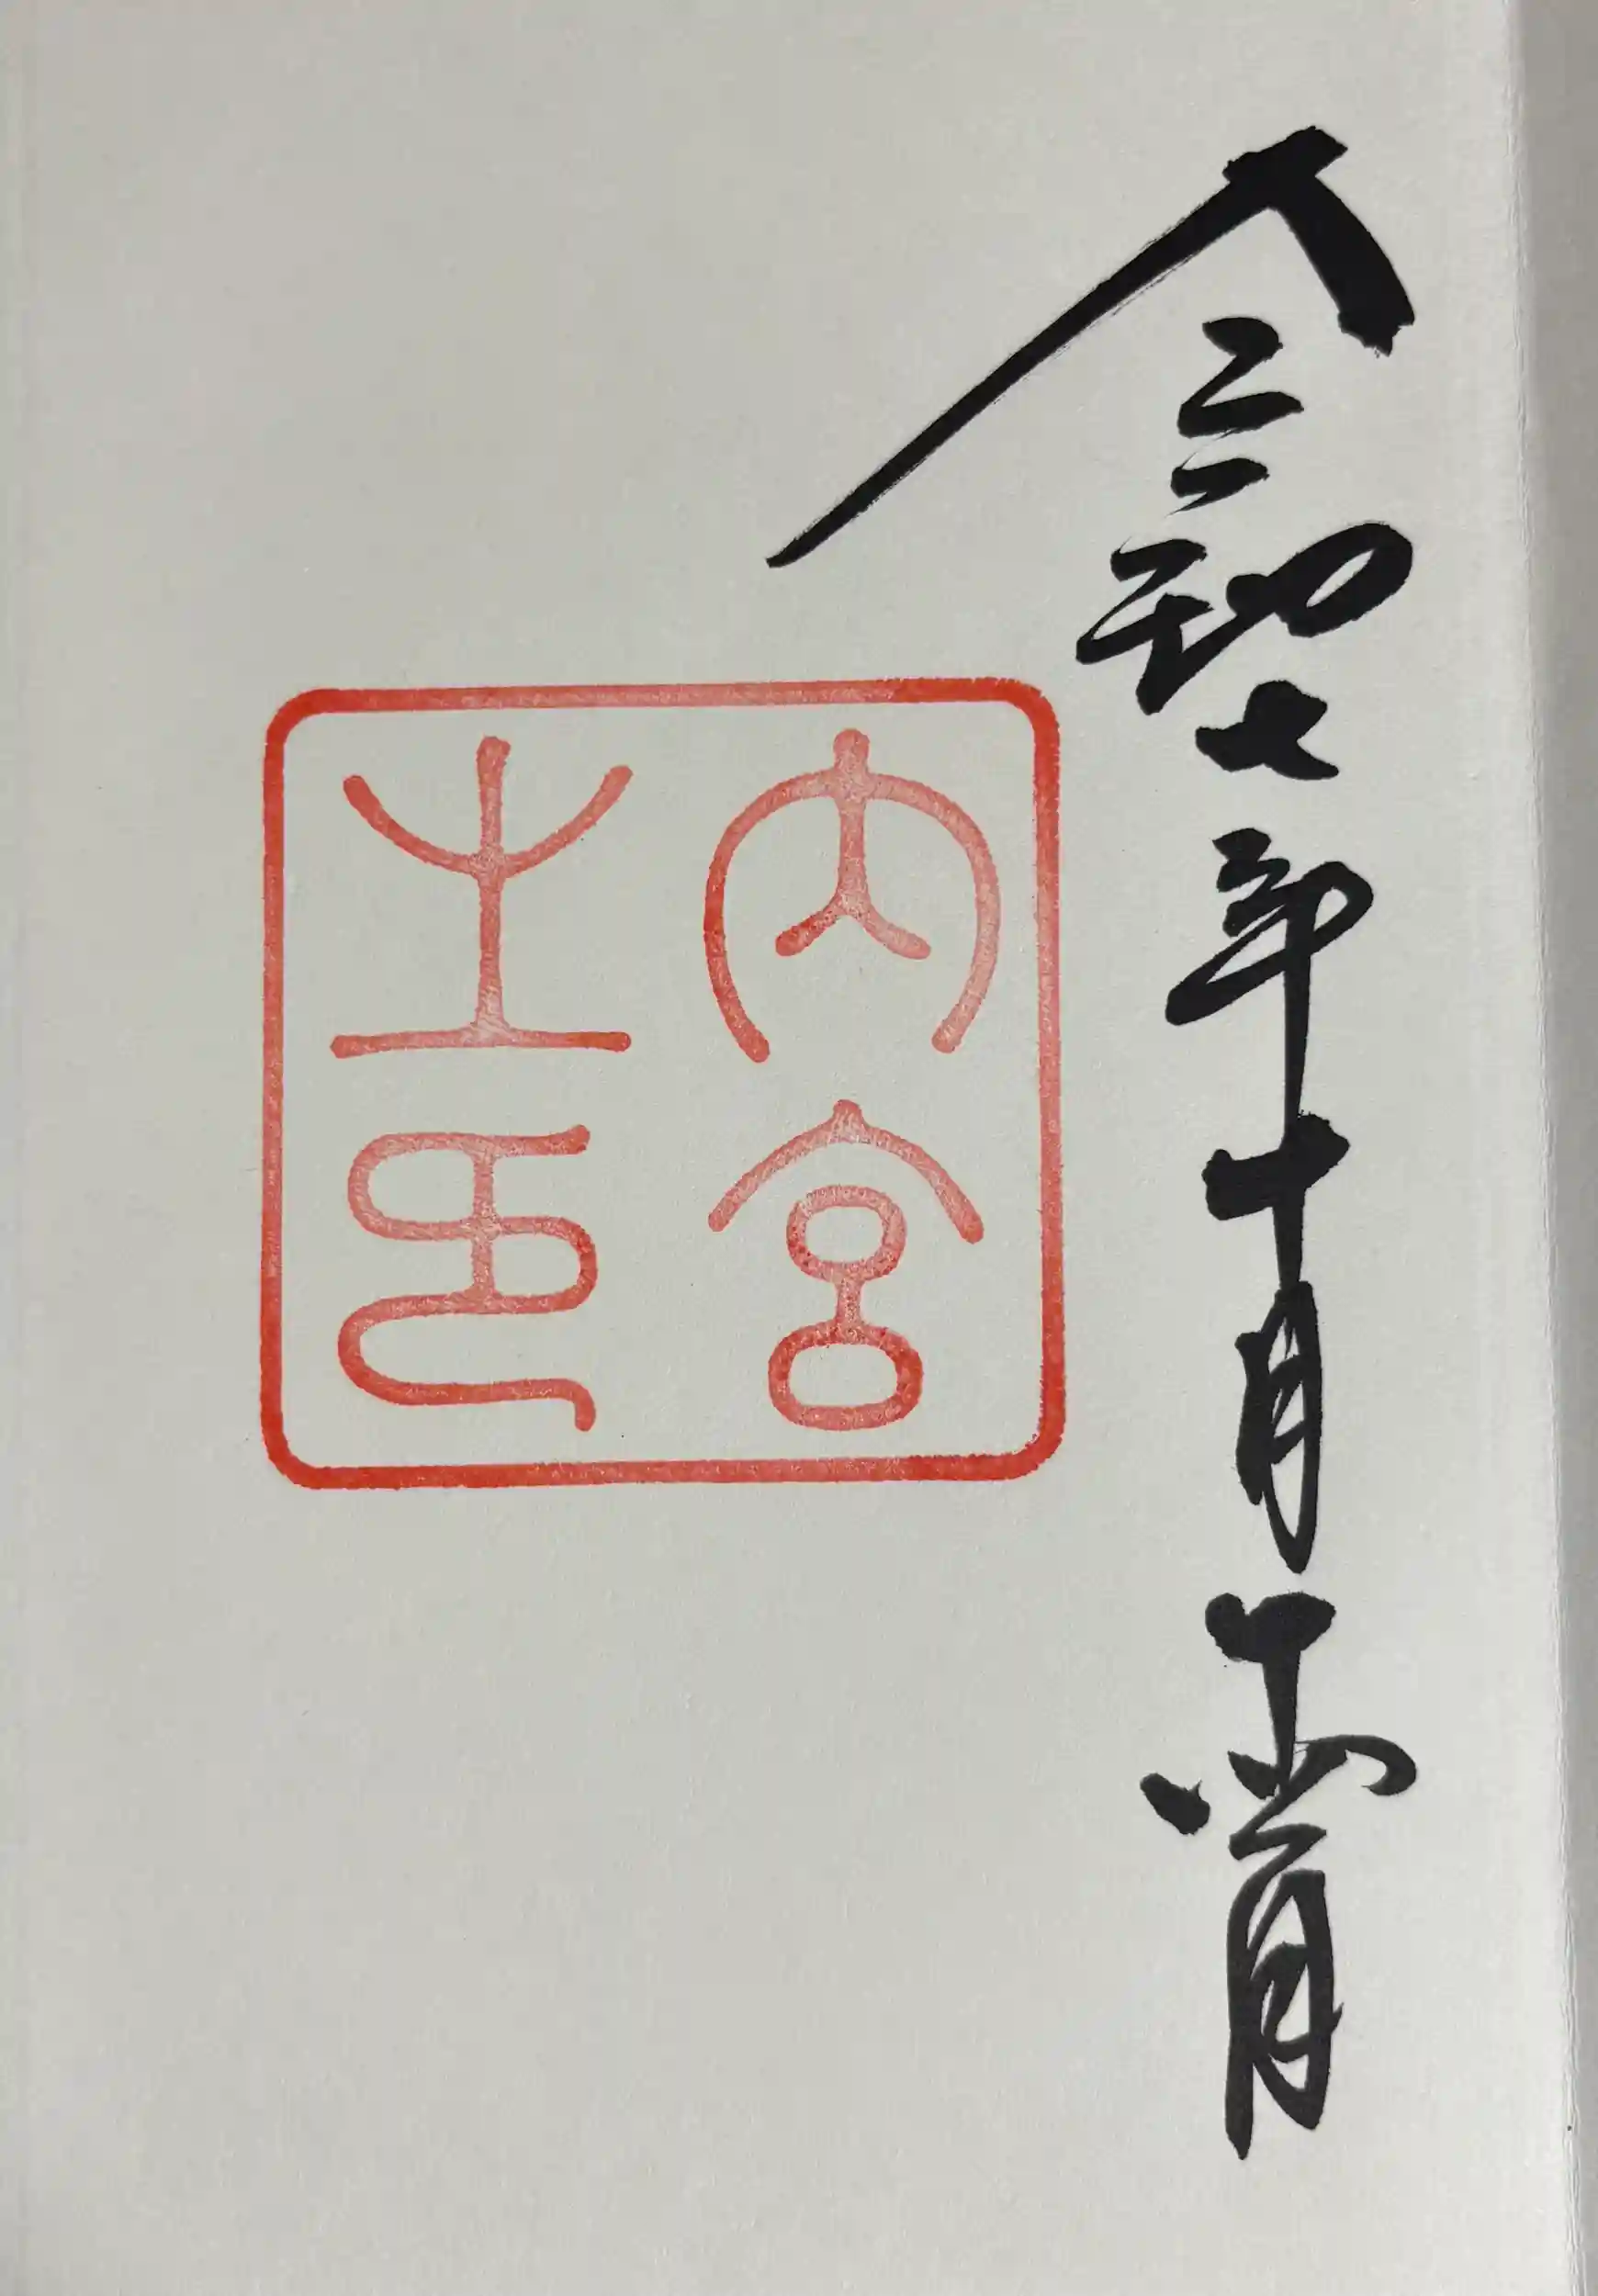 令和七年十月十 日
内宮
之印